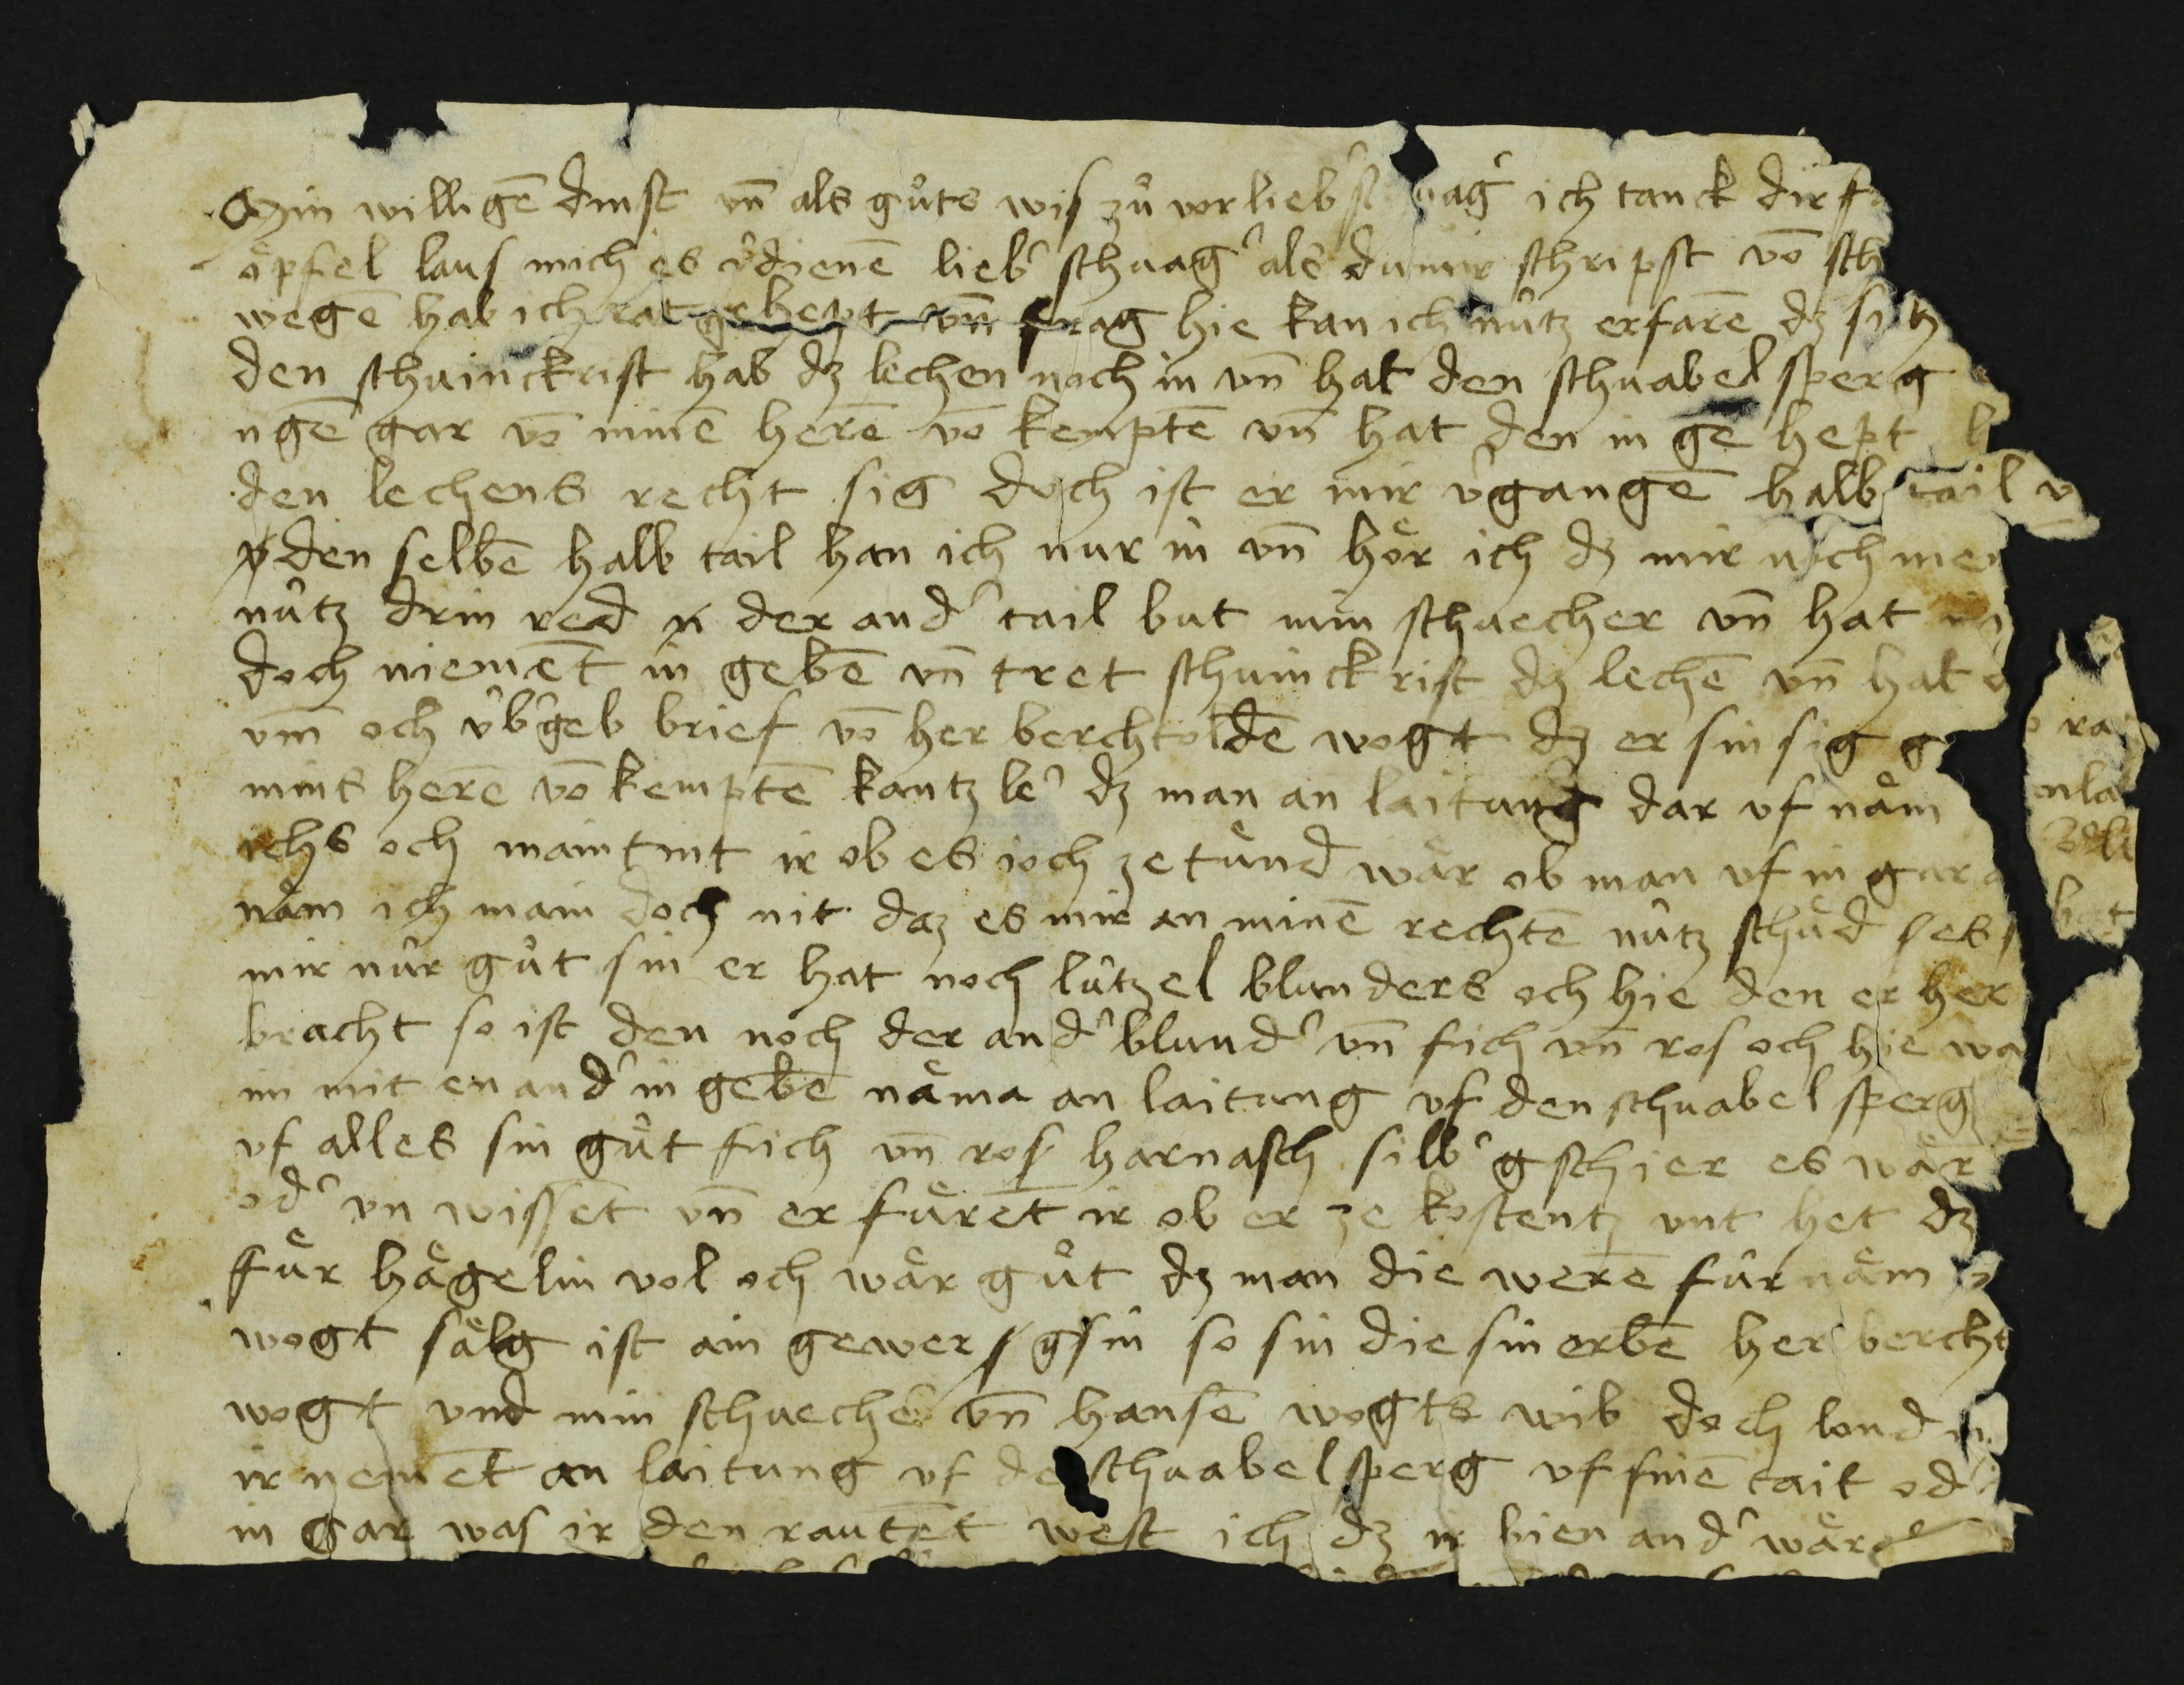 Min willigē dinst vn̄ als gůts wis zů vor lieb' ich tanck dir
öpfel laus mich es v'dienē lieb' schuag' als du mir schripst vō sch
wegē hab ich rat gehept vn̄ frag hie kan ich nütz erfarē dz
den schuinckrist hab dz lechen noch in vn̄ hat den schuabelsperg
ngē gar vō minē herē vō kemptē vn̄ hat den in gehept
den lechens recht sig doch ist er mir v'gangē halb tail v
den selbē halb tail han ich nur in vn̄ hör ich dz mir nich me
nütz drin red der and' tail but min schuecher vn̄ hat
doch niemēt in gebē vn̄ tret schuinckrist dz lechē vn̄ hat
vm̄ och v'b'geb brief vō her berchtoldē wogt dz er sin sig
mins herē vō kemptē kantzle' dz man an laitung dar uf näm
ichs och maintint ir ob es ioch ze tünd wär ob man uf in gar
näm ich main doch nit daz es mir an minē rechtē nütz schäd ses
mir nür gůt sin er hat noch lützel blunders och hie den er her
bracht so ist den noch der and' blund' vn̄ fich vn̄ ros och hie wa
im mit en and' in gebē näma an laitung uf den schuabelsperg
uf alles sin gůt fich vn̄ ros harnasch silb' gschier es wär
od' vn wissēt vn̄ er farēt ir ob er ze kostentz unt het dz
für hägelin vol och wär gůt dz man die werē für näm
wogt sälg ist ain gewer gsin so sin die sin erbē her bercht
wogt und min schueche' vn̄ hansē wogts wib doch lond
ir nemēt an laitung uf de schuabelsperg uf sinē tail od
in gar was ir den rautēt west ich dz ir bien and' wärē
ra
nla
hat